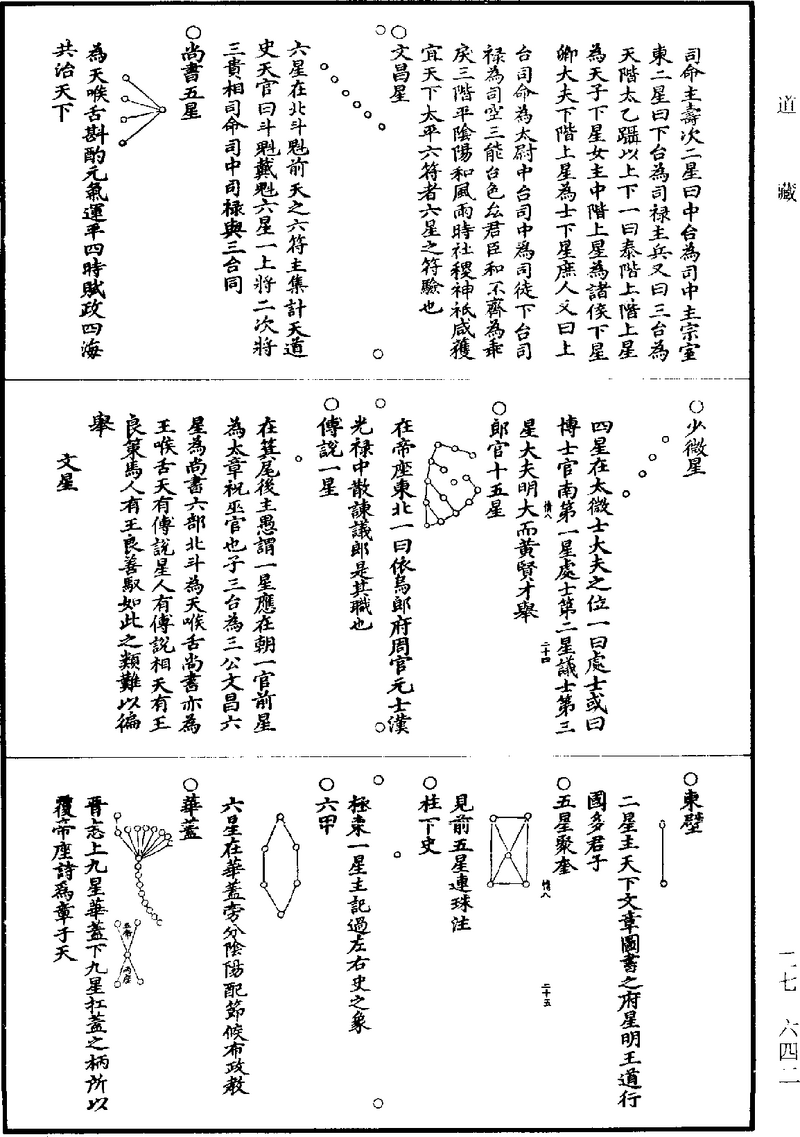 道藏
司命主壽次二星曰中台為司中主宗室
東二星曰下台為司祿主兵又曰三台為
天階太乙躡以上下一曰泰階上階上星
為天子下星女主中階上星為諸侯下星
卿大夫下階上星為士下星庶人又曰上
台司命為太尉中台司中為司徒下台司
祿為司空三能台色㕕君臣和不齊為乖
戾三階平陰陽和風雨時社稷神祇咸獲
宜天下太平六符者六星之符驗也
○文昌星
六星在北斗魁前天之六符主集計天道
史天官曰斗魁戴魁六星一上將二次將
三貴相司命司中司祿與三合同
○尚書五星
為天喉舌斟酌元氣運平四時賦政四海
共治天下
○少微星
四星在太微士大夫之位一曰處士或曰
博士官南第一星處士第二星議士第三
星大夫明大而黃賢才舉
情八
二十四
○郎官十五星
在帝座東北一曰依烏郎府周官元士漢
光祿中散諫議郎是其職也
○傅說一星
在箕尾後主愚謂一星應在朝一官前星
為太章祝巫官也子三台為三公文昌六
星為尚書六部北斗為天喉舌尚書亦為
王喉舌天有傅說星人有傅說相天有王
良策馬人有王良善馭如此之類難以徧
舉
文星
○東壁
二星主天下文章圖書之府星明王道行
國多君子
○五星聚奎
情八
二十五
見前五星連珠注
○柱下史
極東一星主記過左右史之象
○六甲
六星在華蓋旁分陰陽配節候布政教
○華蓋
五帝
內座
晉志上九星華蓋下九星扛蓋之柄所以
覆帝座詩為章于天
一七
六四二